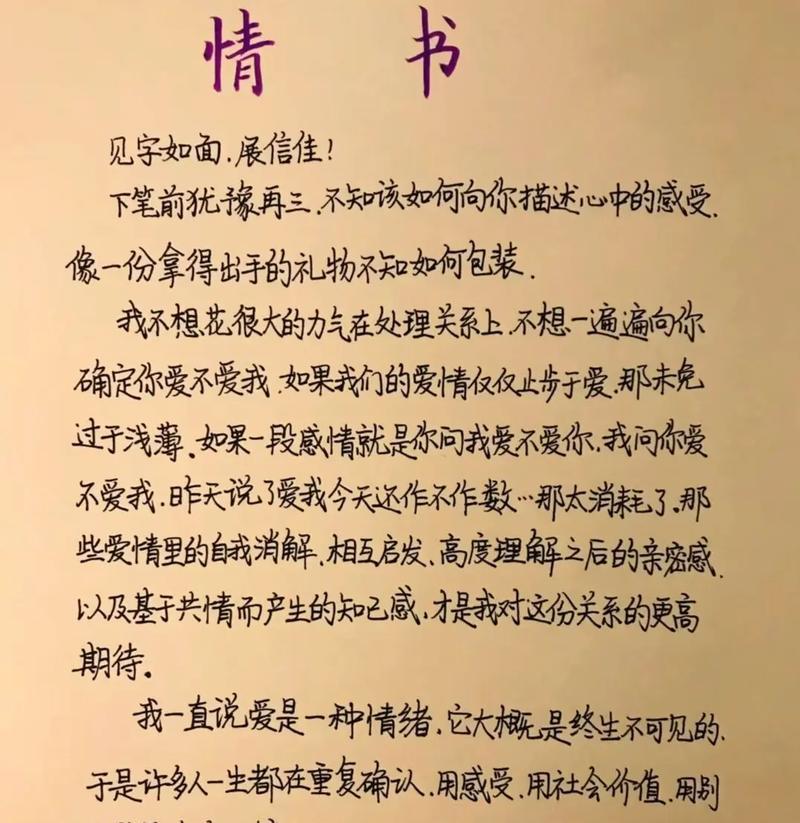 情 书
见字如面.展信佳!
下笔前犹豫再三.不知该如何向你描述心中的感受.
像一份拿得出手的礼物不知如何包装.
我不想花很大的力气在处理关系上.不想一遍遍向你
确定你爱不爱我.如果我们的爱情仅仅止步于爱.那未免
过于浅薄.如果一段感情就是你问我爱不爱你.我问你爱
不爱我.昨天说了爱我今天还作不作数…那太消耗了.那
些爱情里的自我消解.相互启发.高度理解之后的亲密感.
以及基于共情而产生的知己感.才是我对这份关系的更高
期待。
我一直说爱是一种情绪.它大概是终生不可见的.
于是许多人一生都在重复确认.用感受.用社会价值.用别